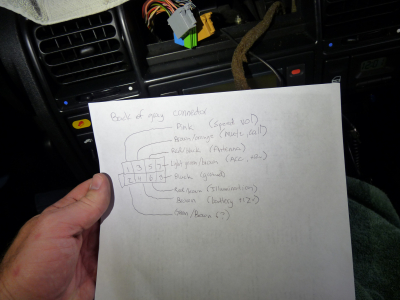 Back of gray connector
Pink (Speed sig)
Brown/orange (Mute, cell)
Red/black (Antenna)
Light green/brown (ACC,
1 3 5 7
Black (ground)
2 4 6 8
Red/brown (Illumination)
Brown (battery +12v)
Green/Brown (?)